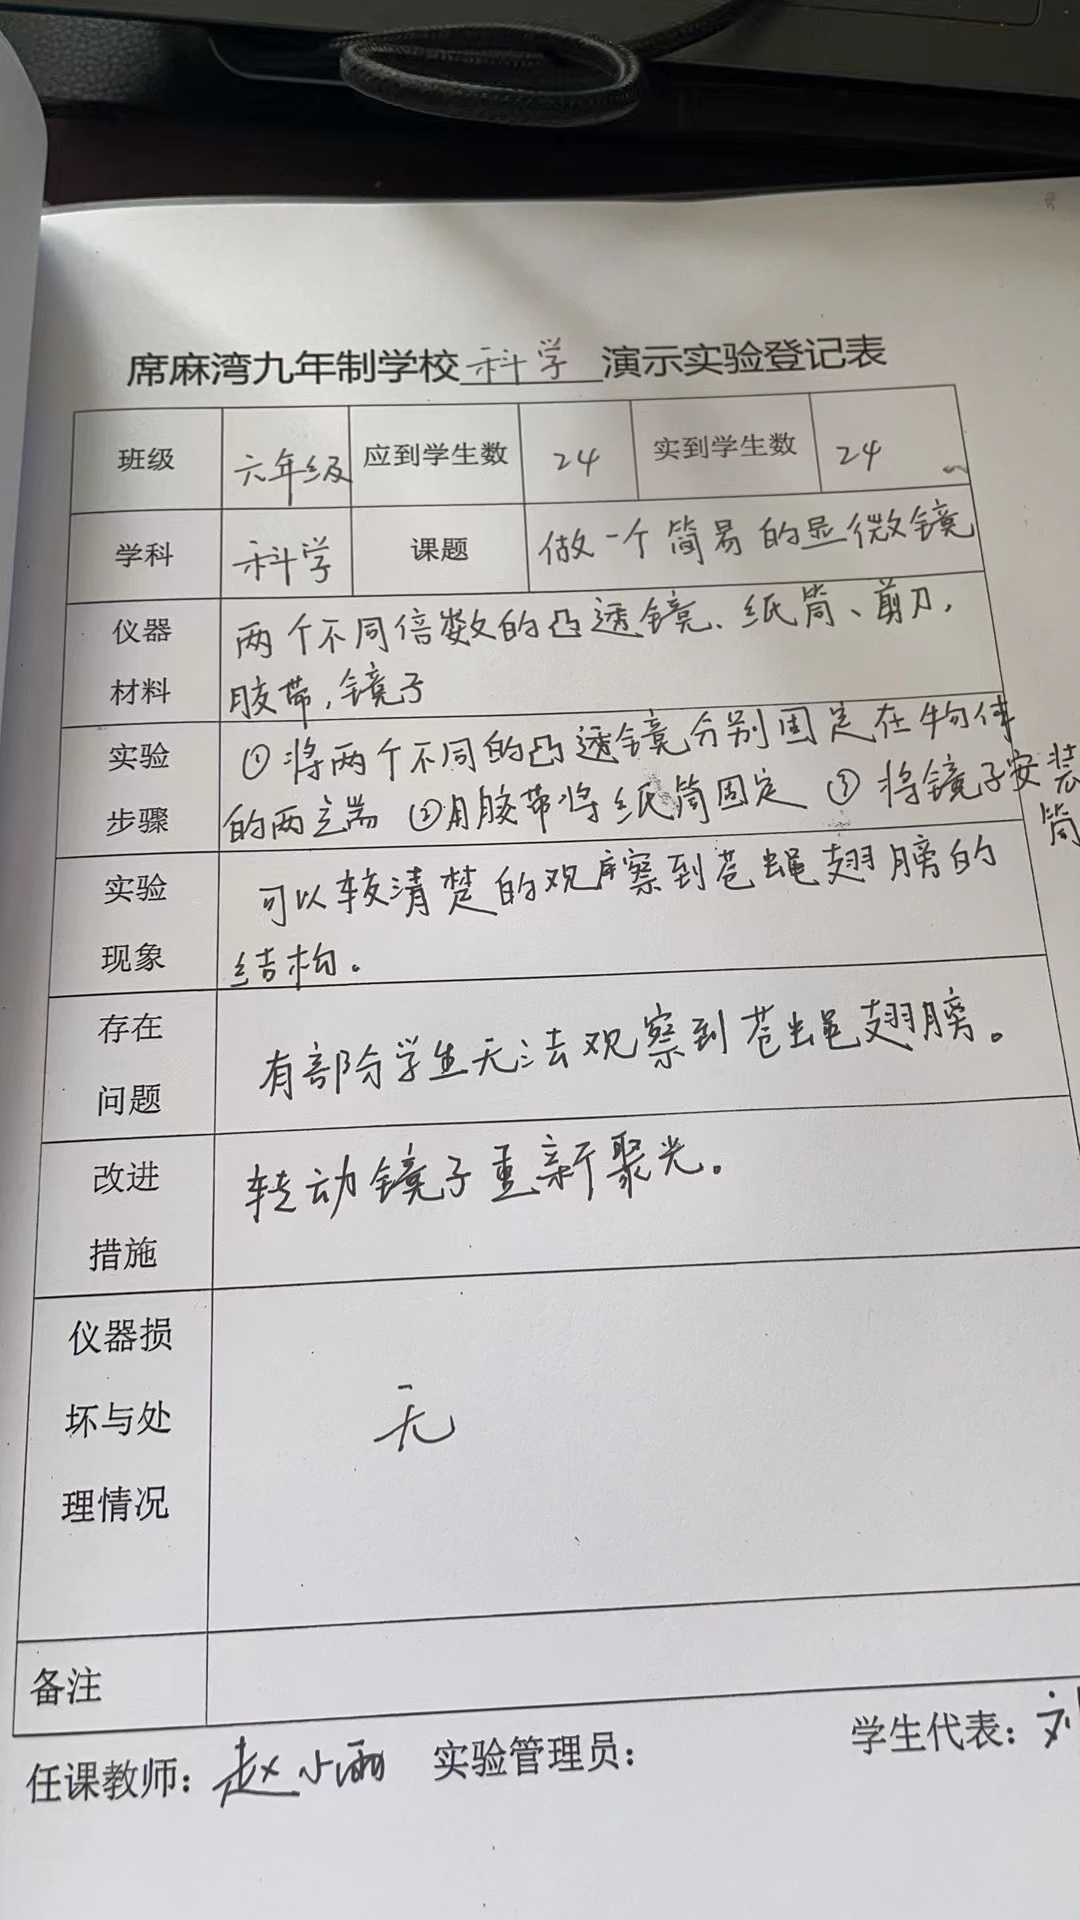 席麻湾九年制学校 科学 演示实验登记表
班级 六年级 应到学生数 24 实到学生数 24
学科 科学 课题 做一个简易的显微镜
仪器 两个不同倍数的凸透镜、纸筒、剪刀,
材料 胶带,镜子
实验 ①将两个不同的凸透镜分别固定在物体
步骤 的两端 ②用胶带将纸筒固定 ③将镜子安装
筒
实验 可以较清楚的观察到苍蝇翅膀的
现象 结构。
存在
问题 有部分学生无法观察到苍蝇翅膀。
改进 转动镜子重新聚光。
措施
仪器损
坏与处 无
理情况
备注
任课教师: 赵小雨 实验管理员: 学生代表: 刘